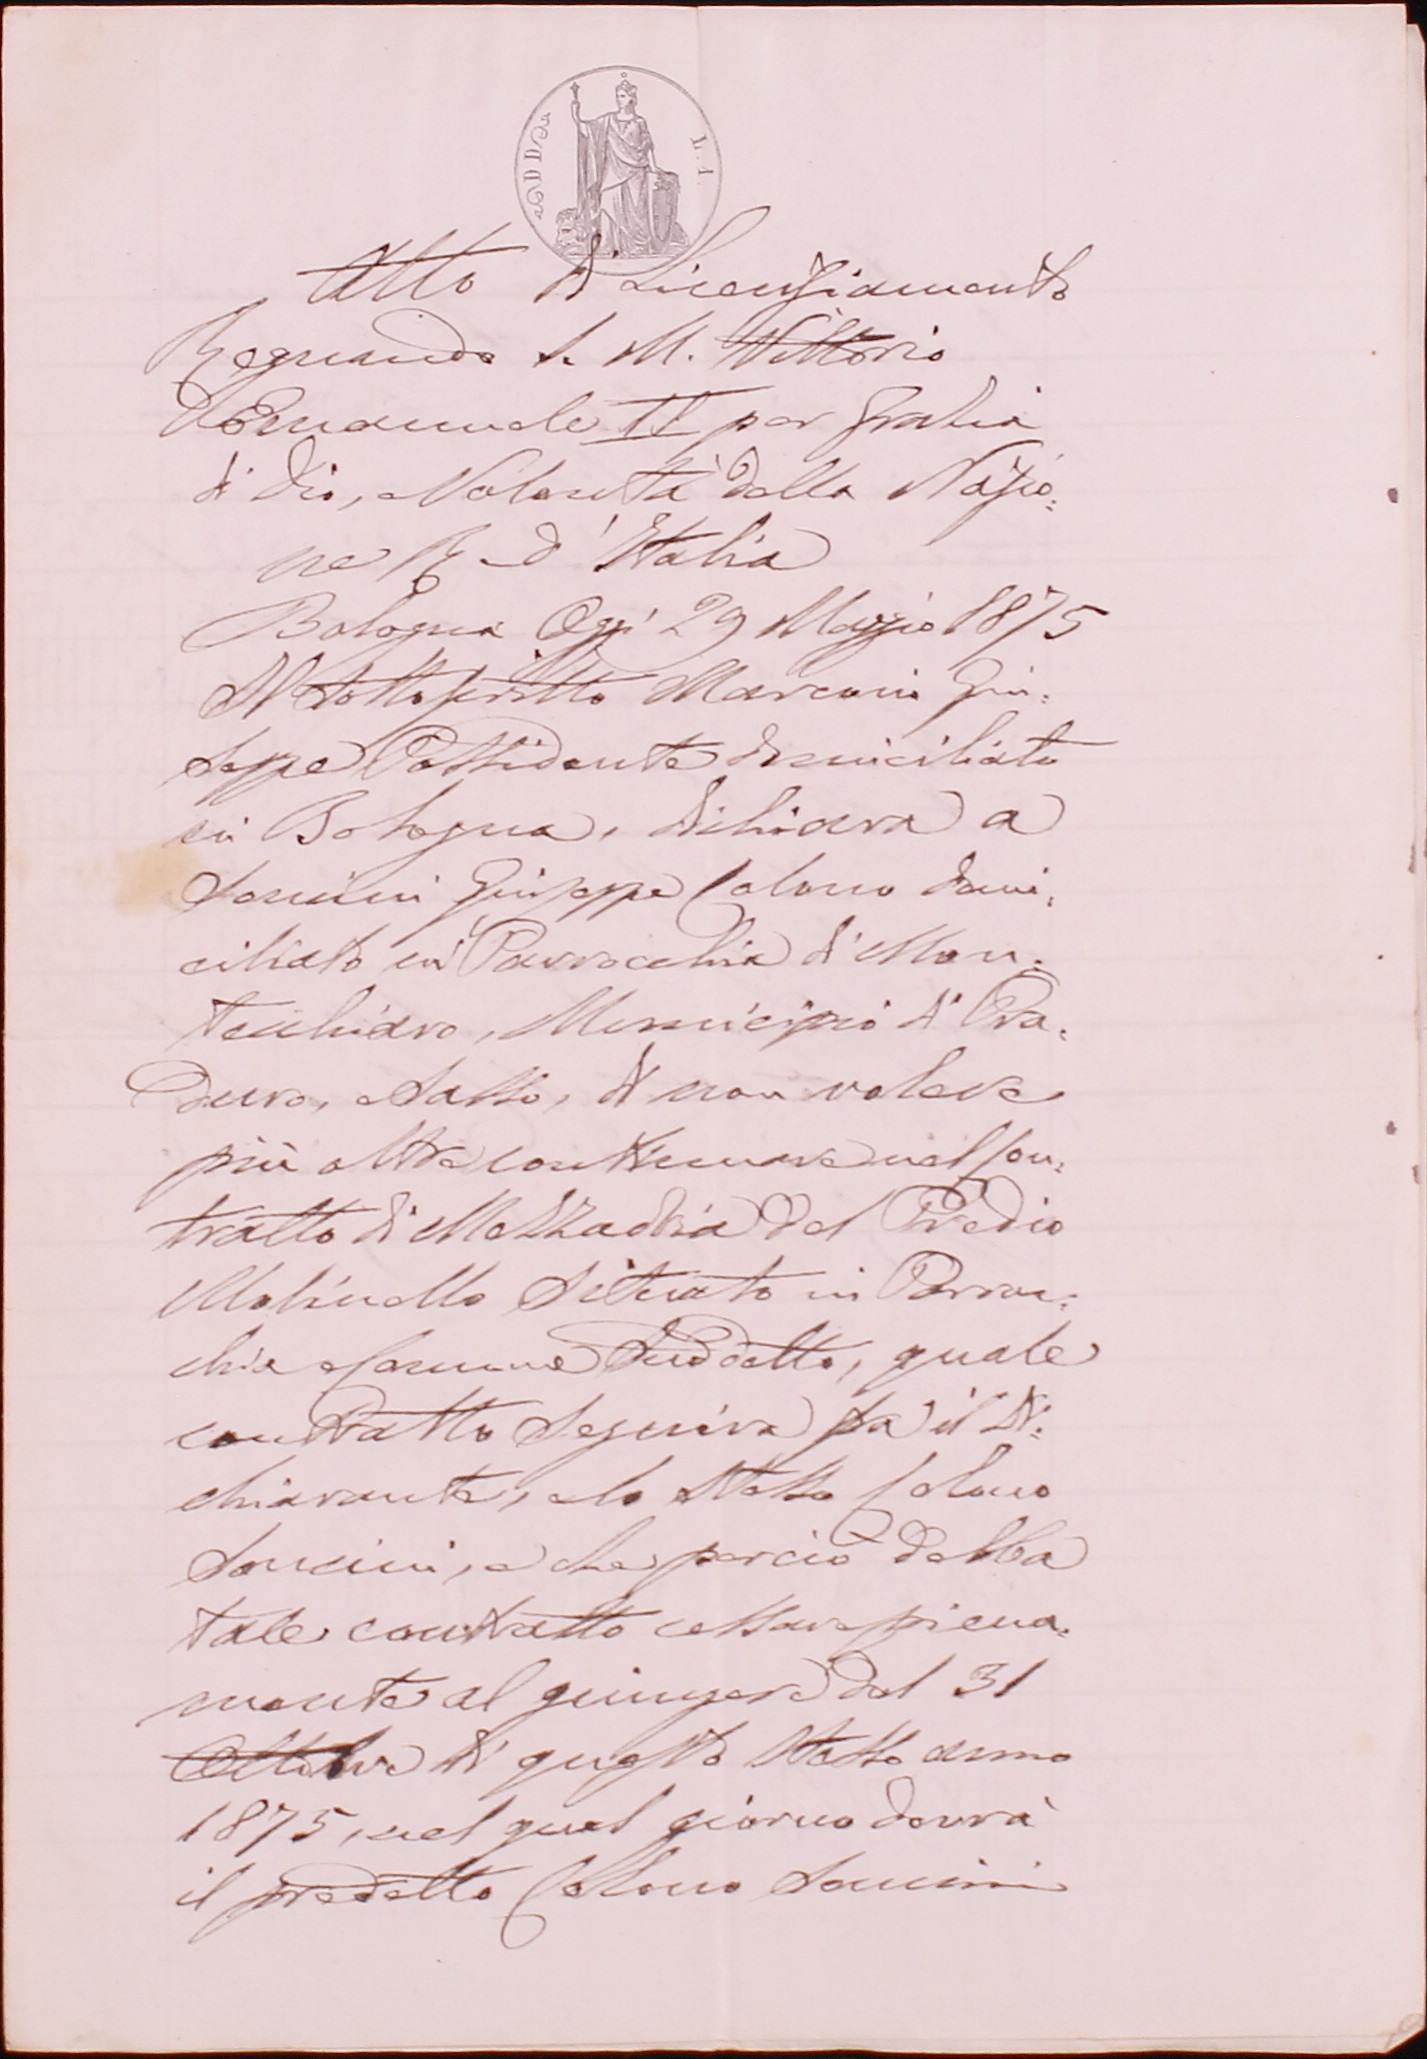 Atto di Licenziamento
Regnando S. M. Vittorio
Emanuele II per Grazia
di Dio, e Volontà della Nazio=
ne Re d'Italia
Bologna Oggi 29 Maggio 1875
Il Sottoscritto Marconi Giu=
seppe Possidente domiciliato
in Bologna, dichiara a
Giuseppe Colono domi=
ciliato in Parrocchia di Mon=
techiaro, Municipio di Pra=
duro, e Sasso, di non volere
più oltre continuare nel Con=
tratto di Mezzadria del Predio
Molinello Situato in Parroc=
chia e Comune Suddetto, quale
contratto seguiva fra il Di=
chiarante, e lo stesso Colono
e che perciò debba
tale contratto cessare piena=
mente al giungere del 31
Ottobre di questo stesso anno
1875, nel qual giorno dovrà
il predetto Colono